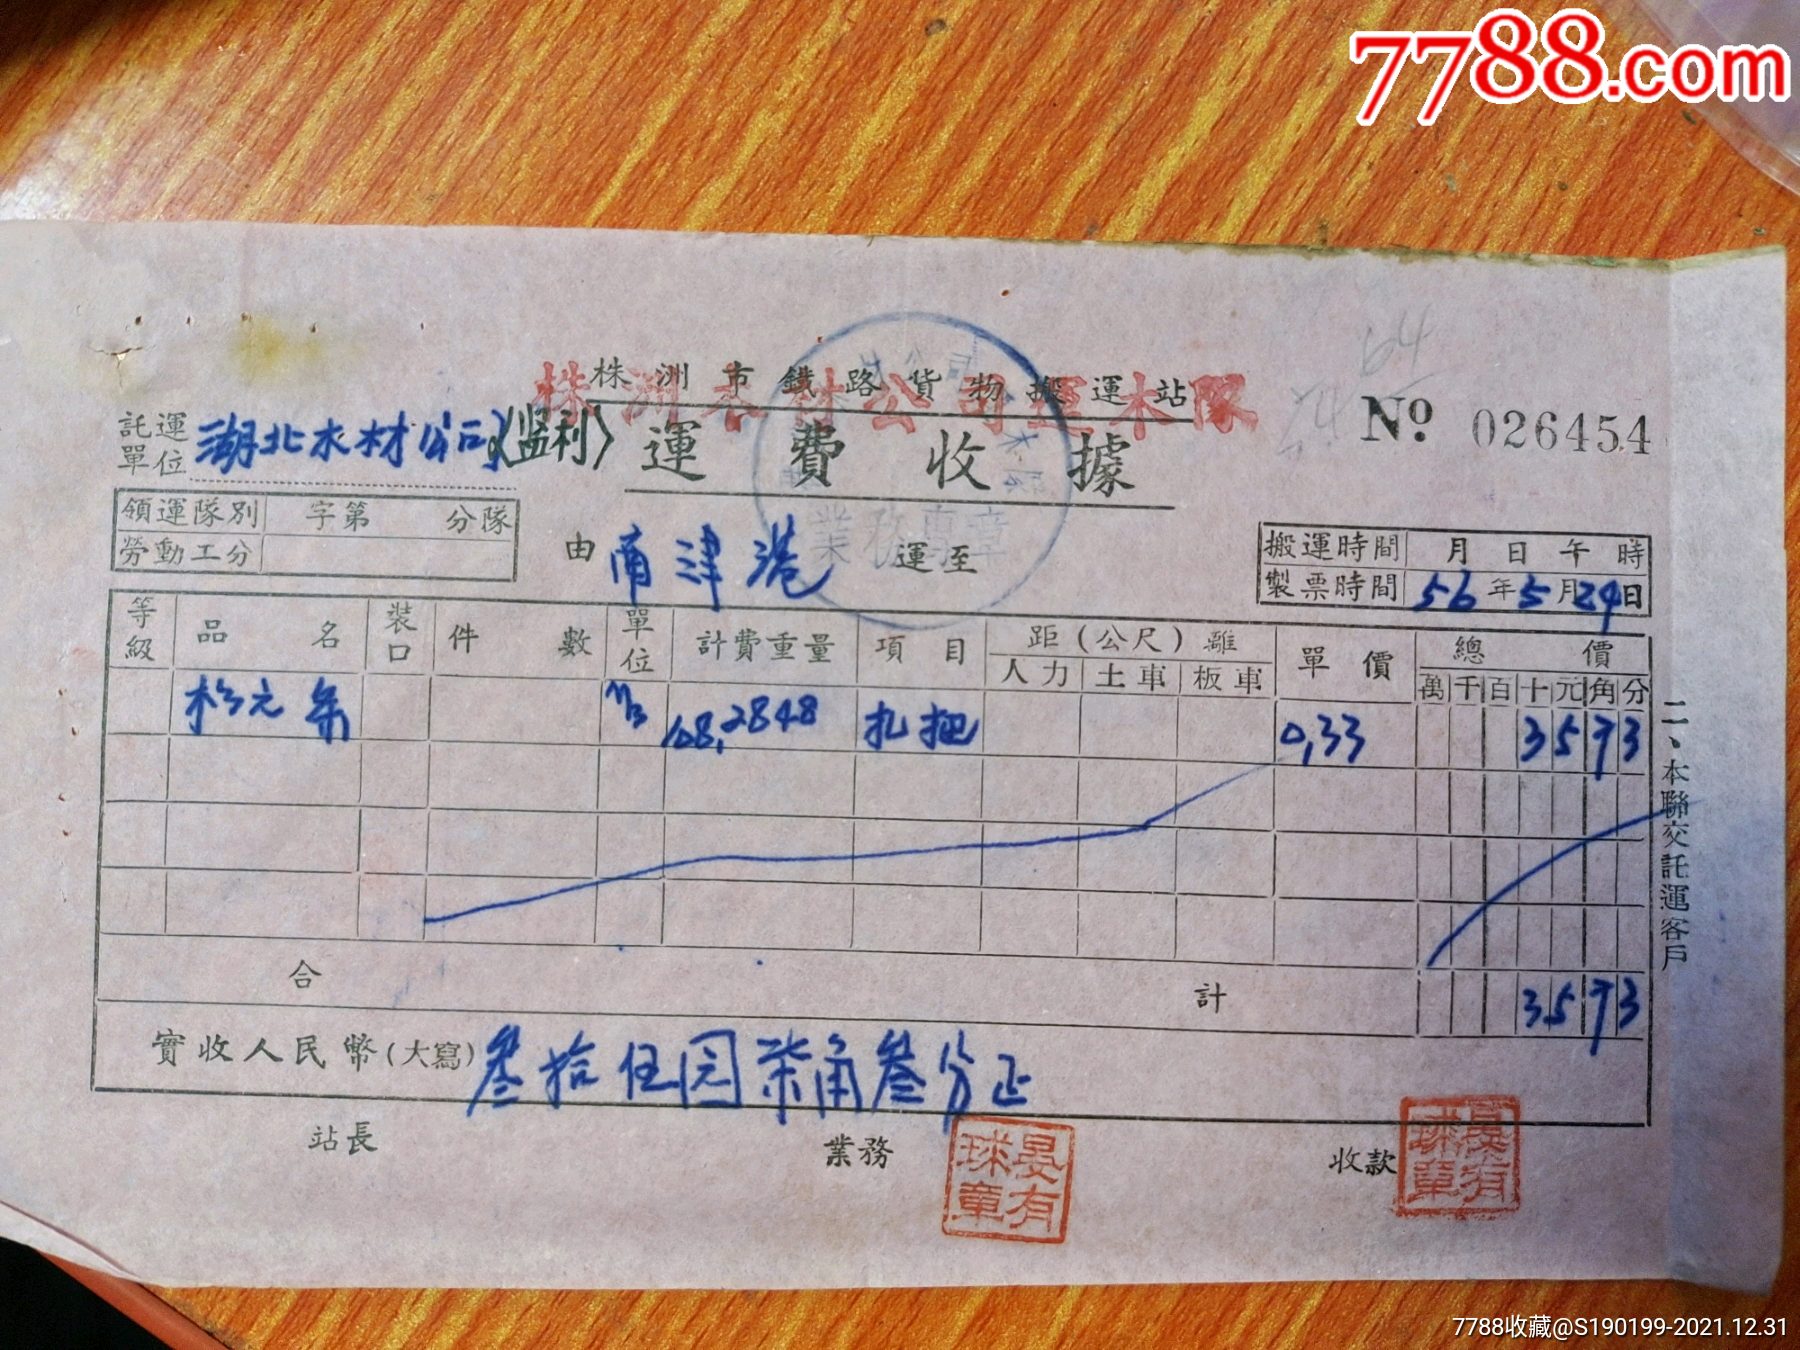 7788.com
株洲市鐵路貨物搬運站
株洲木材公司運木隊
託運單位 湖北木材公司(监利) 運費收據 № 026454
領運隊別 字第 分隊
勞動工分
由 南津港 運至
業務專章
搬運時間 月 日 午 時
製票時間 56年5月29日
等級 品名 裝口 件數 單位 計費重量 項目 距(公尺)離 單價 總價
人力 土車 板車 萬千百十元角分
杉元条 M3 108,2848 扎把 0,33 3573
合計 3573
實收人民幣(大寫) 叁拾伍园柒角叁分正
站長 業務 收款
晏有球章
晏有球章
二、本聯交託運客戶
7788收藏@S190199-2021.12.31